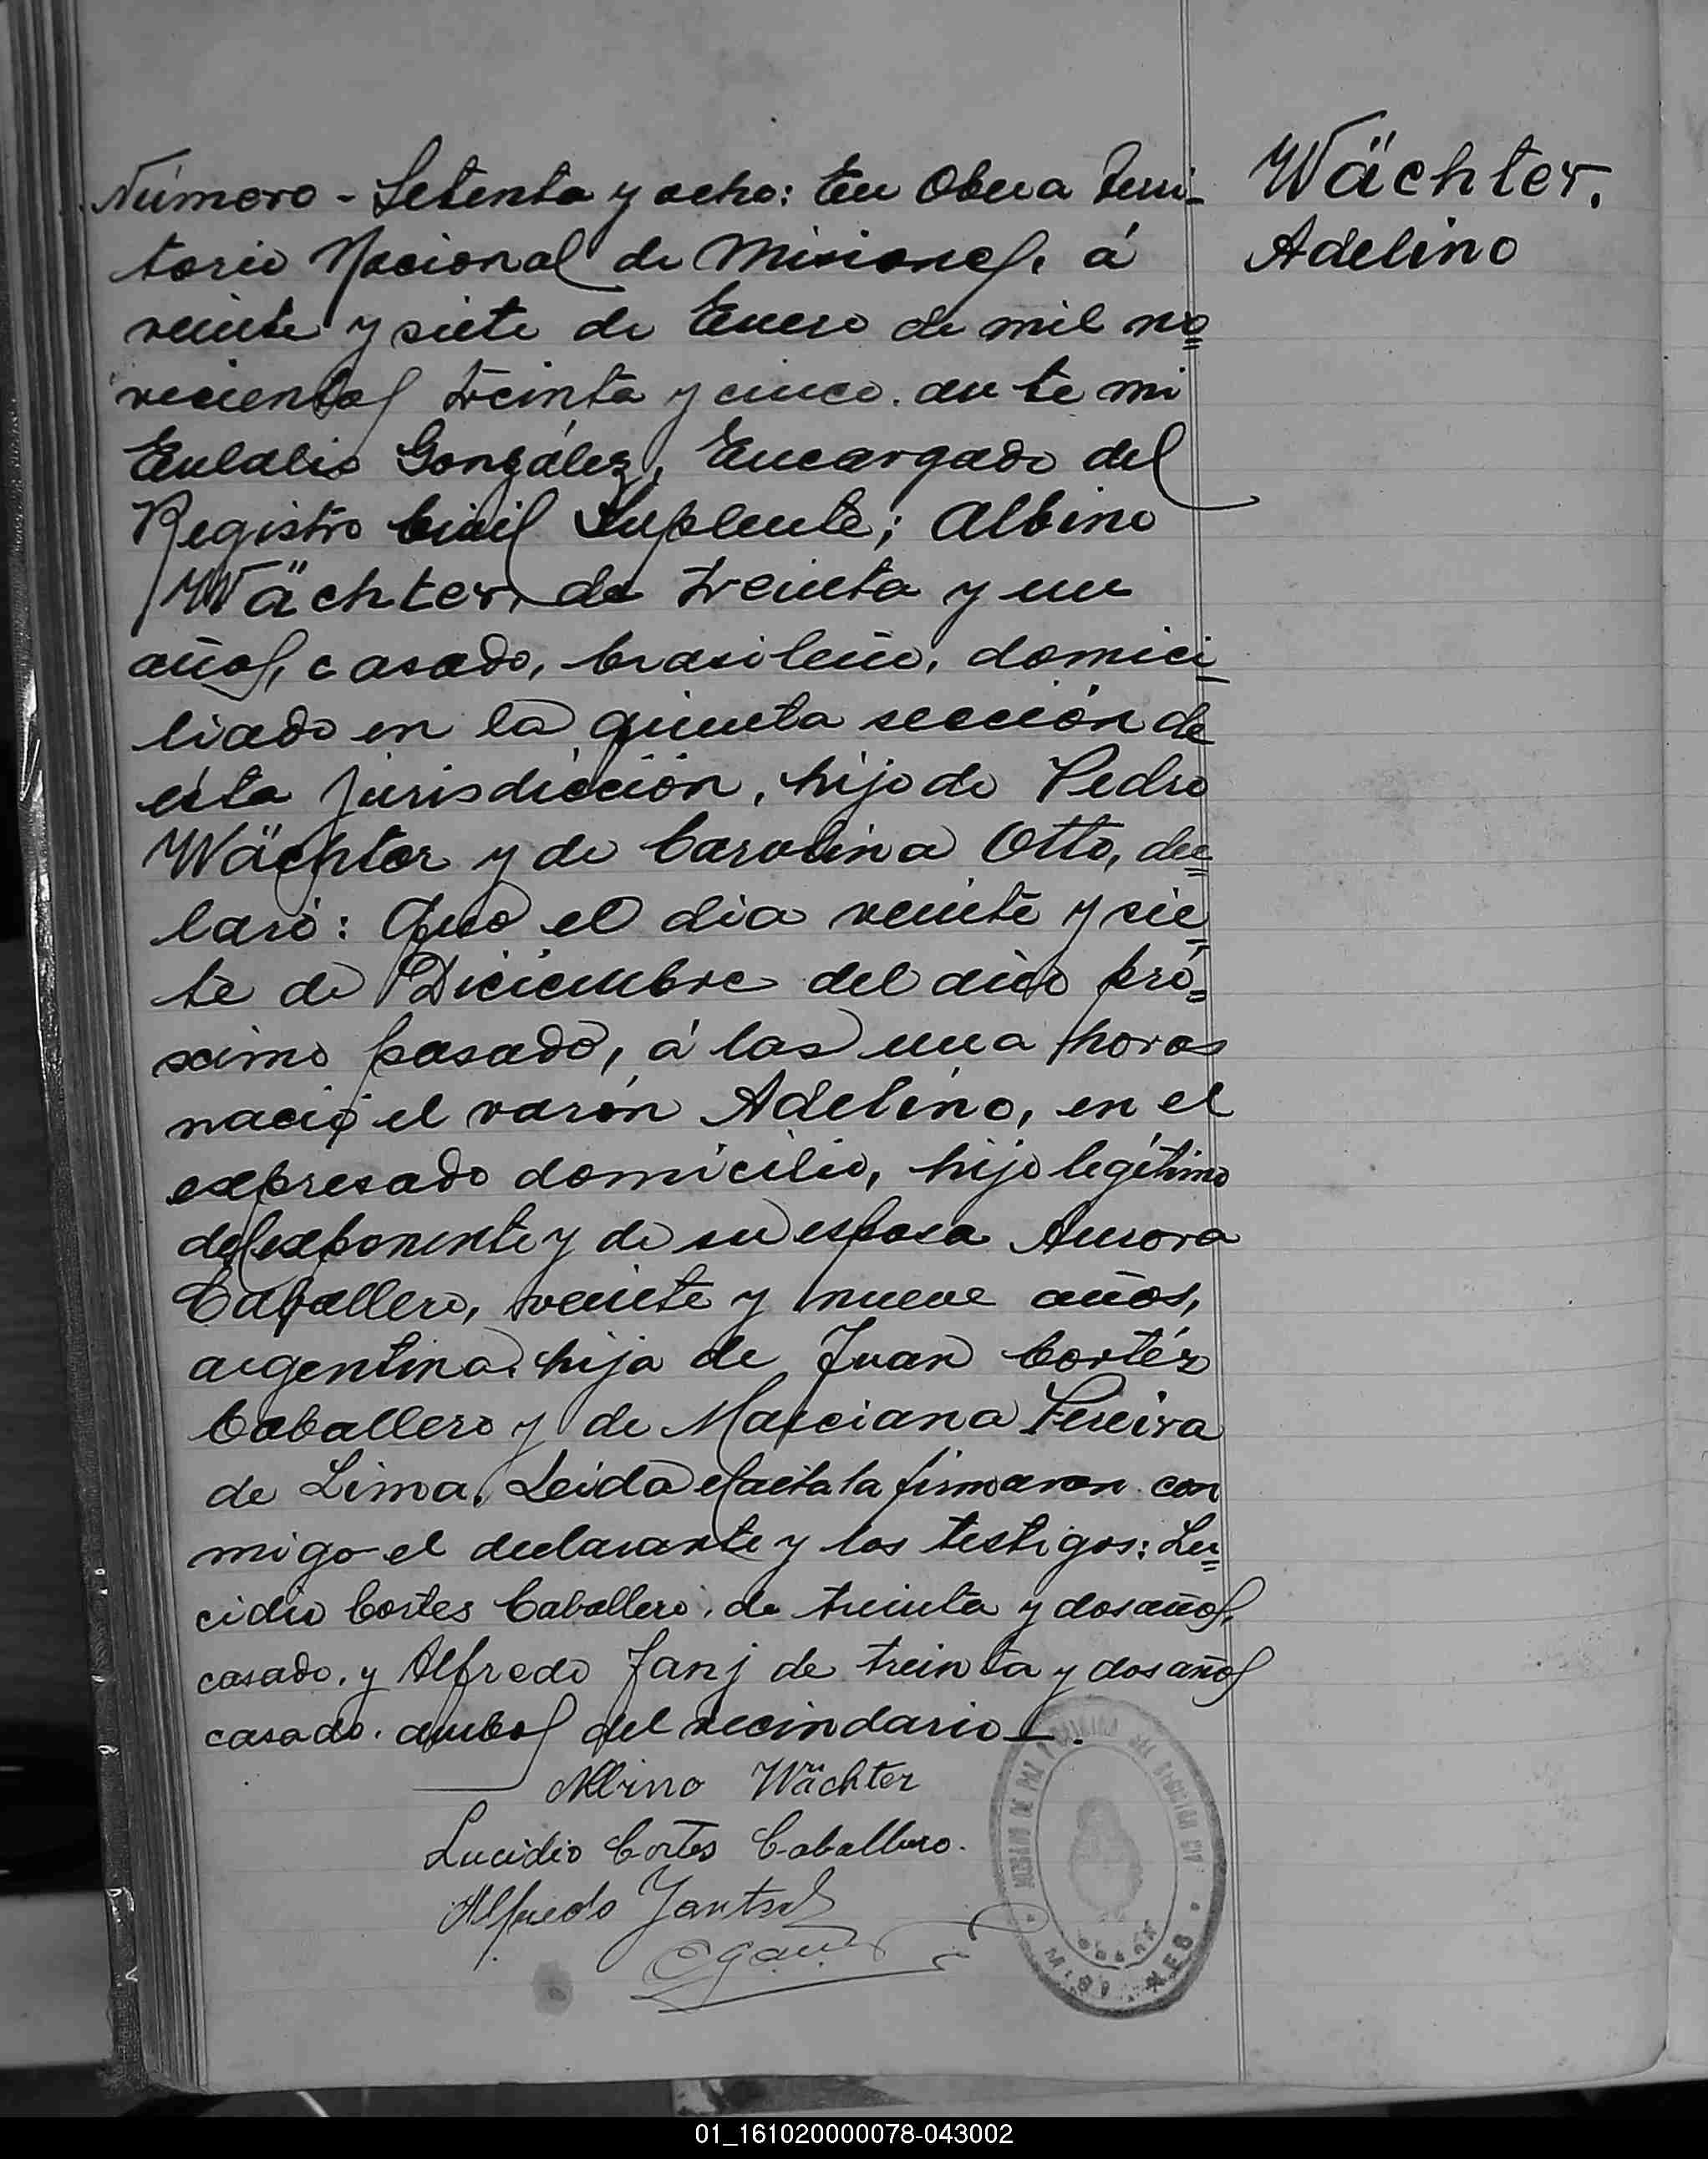 Wächter,
Adelino
Número - Setenta y ocho: En Obera Terri-
torio Nacional de Misiones, á
veinte y siete de Enero de mil no=
vecientos treinta y cinco. ante mi
Eulalio González, Encargado del
Registro Civil Suplente; Albino
Wächter, de treinta y un
años, casado, brasileño, domici-
liado en la quinta sección de
ésta jurisdicción, hijo de Pedro
Wächter y de Carolina Otto, dec=
laró: Que el dia veinte y sie=
te de Diciembre del año pró=
ximo pasado, á las una horas
nació el varón Adelino, en el
expresado domicilio, hijo legítimo
del exponente y de su esposa Aurora
Caballero, veinte y nueve años,
argentina. hija de Juan Cortéz
Caballero y de Marciana Pereira
de Lima. Leida el acta la firmaron con
migo el declarante y los testigos: Lu=
cidio Cortes Caballero, de treinta y dos años,
casado, y Alfredo Janj de treinta y dos años
casado. ambos del vecindario —.
Albino Wächter
Lucidio Cortes Caballero.
Alfredo Jantsch
JUZGADO DE PAZ Y OFICINA DEL REGISTRO CIVIL
OBERA
MISIONES
01_161020000078-043002